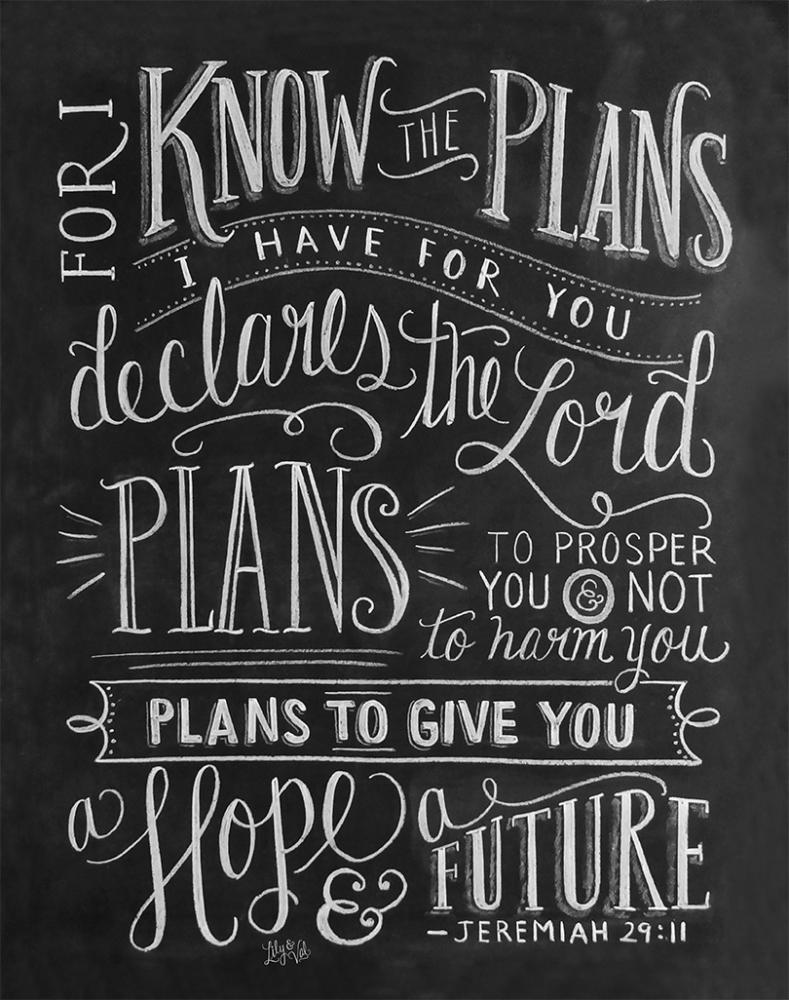 FOR I KNOW THE PLANS
I HAVE FOR YOU
declares the Lord
PLANS
TO PROSPER
YOU & NOT
to harm you
PLANS TO GIVE YOU
a Hope & a
FUTURE
–JEREMIAH 29:11
Lily & Val